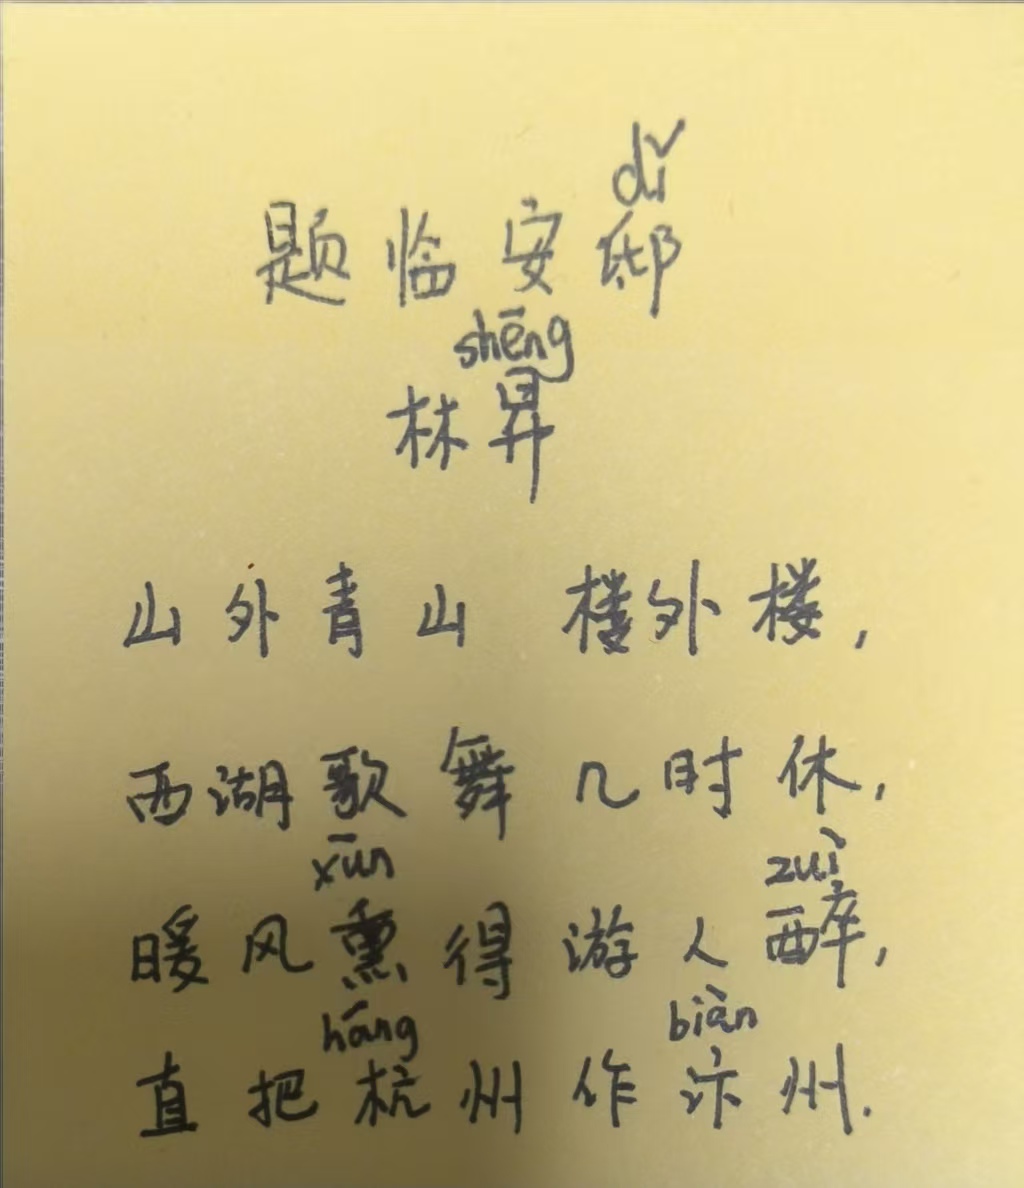 dǐ
题临安邸
shēng
林昇
山外青山 楼外楼,
西湖歌舞几时休,
xūn zuì
暖风熏得游人醉,
háng biàn
直把杭州作汴州.